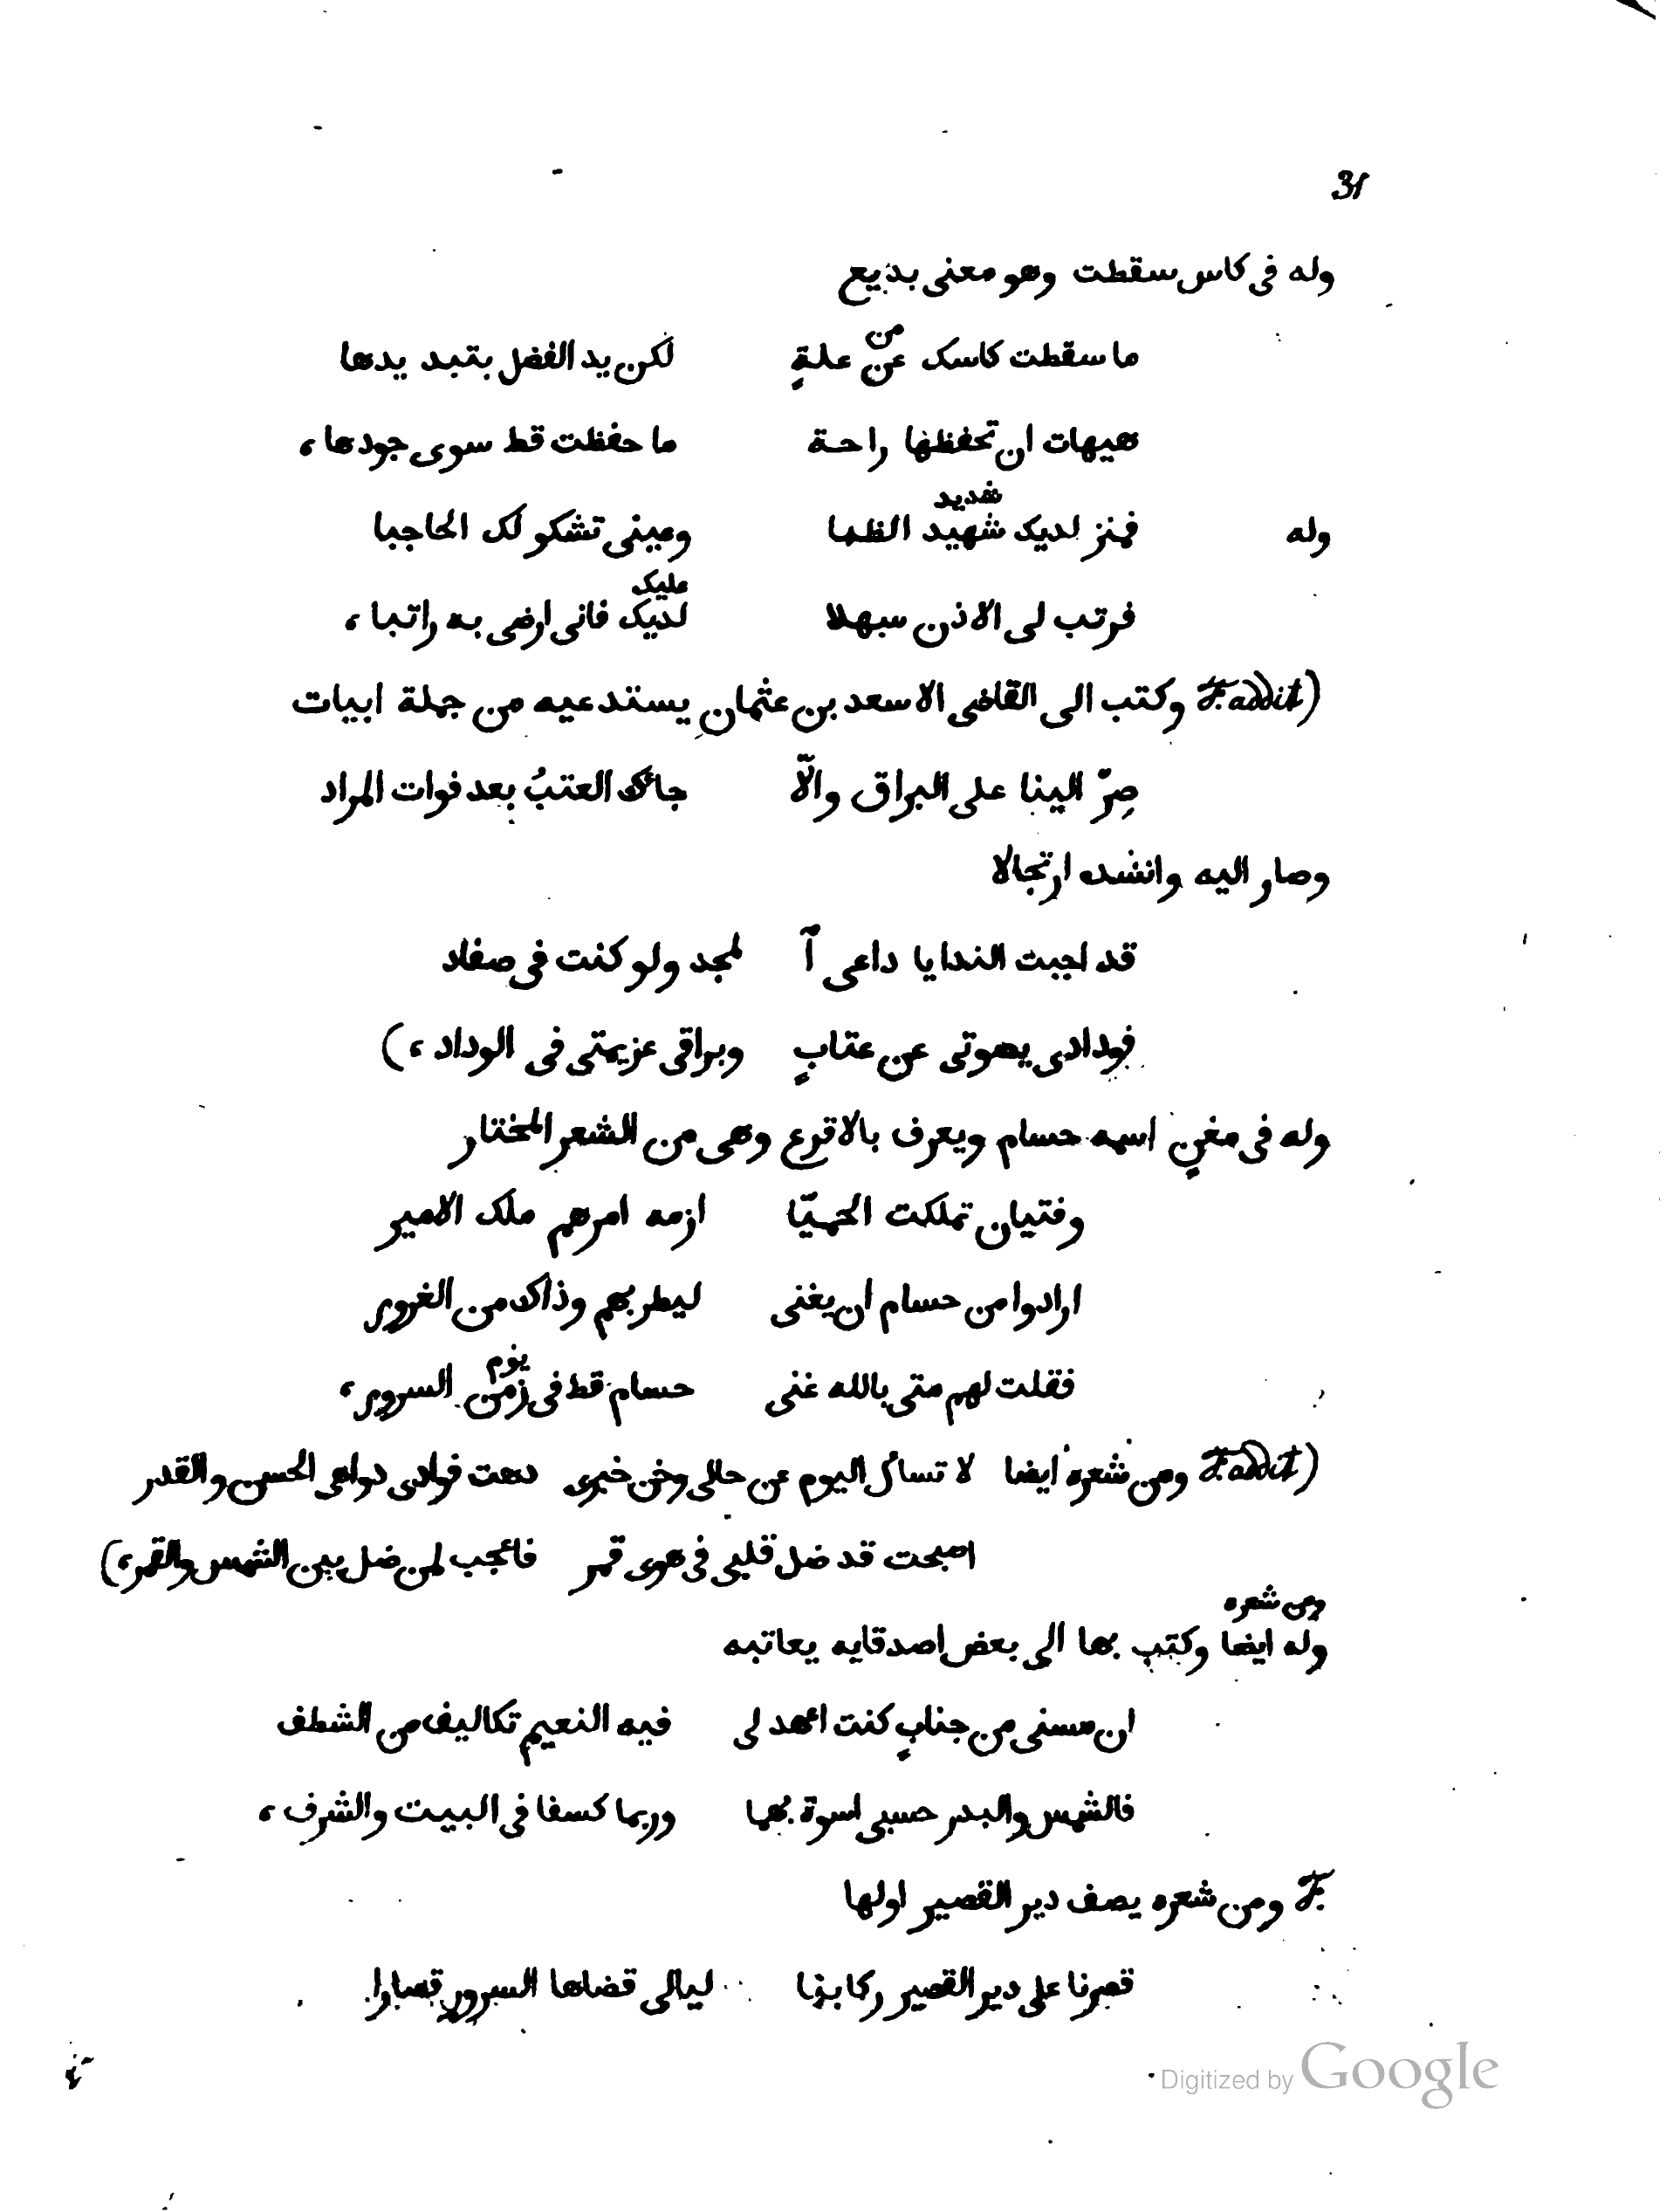 31
وله فى كاس سقطت وهو معنى بديع
من
ما سقطت كاسك عن علةٍ لكن يد الفضل بتبد يدها
هيهات ان تحفظها راحة ما حفظت قط سوى جودها،
شديد
وله فمنز لديك شهيد الظما وعينى تشكو لك الحاجبا
عليك
فرتب لى الاذن سهلا لديك فانى ارضى به راتبا،
(F. addit وكتب الى القاضى الاسعد بن عثمان يستدعيه من جملة ابيات
صِرّ الينا على البراق والّا جائك العتبُ بعد فوات المراد
وصار اليه وانشده ارتجالا
قد اجبت الندا يا داعى آ لمجد ولو كنت فى صفاد
فودادى يصوتى عن عتابٍ وبراقى عزيمتى فى الوداد،)
وله فى مغنٍ اسمه حسام ويعرف بالاقرع وهى من الشعر المختار
وفتيان تملكت الحميّا ازمه امرهم ملك الامير
ارادوا من حسام ان يغنى ليطربهم وذاك من الغرور
يوم
فقلت لهم متى بالله غنى حسام قط فى زمن السرور،
(F. addit ومن شعره ايضا لا تسال اليوم عن حالى وخن خبرى دهت فوادى دواهى الحسن والقدر
اصبحت قد ضل قلبى فى هوى قمر فاعجب لمن ضل بين الشمس والقمر،)
ومن شعره
وله ايضا وكتب بها الى بعض اصدقايه يعاتبه
ان مسنى من جنابٍ كنت اعهد لى فيه النعيم تكاليف من الشظف
فالشمس والبدر حسبى اسوة بهما وربما كسفا فى البيت والشرف،
F. ومن شعره يصف دير القصير اولها
قصرنا على دير القصير ركابنا ليالى قضاها السرور قصارا
Digitized by Google